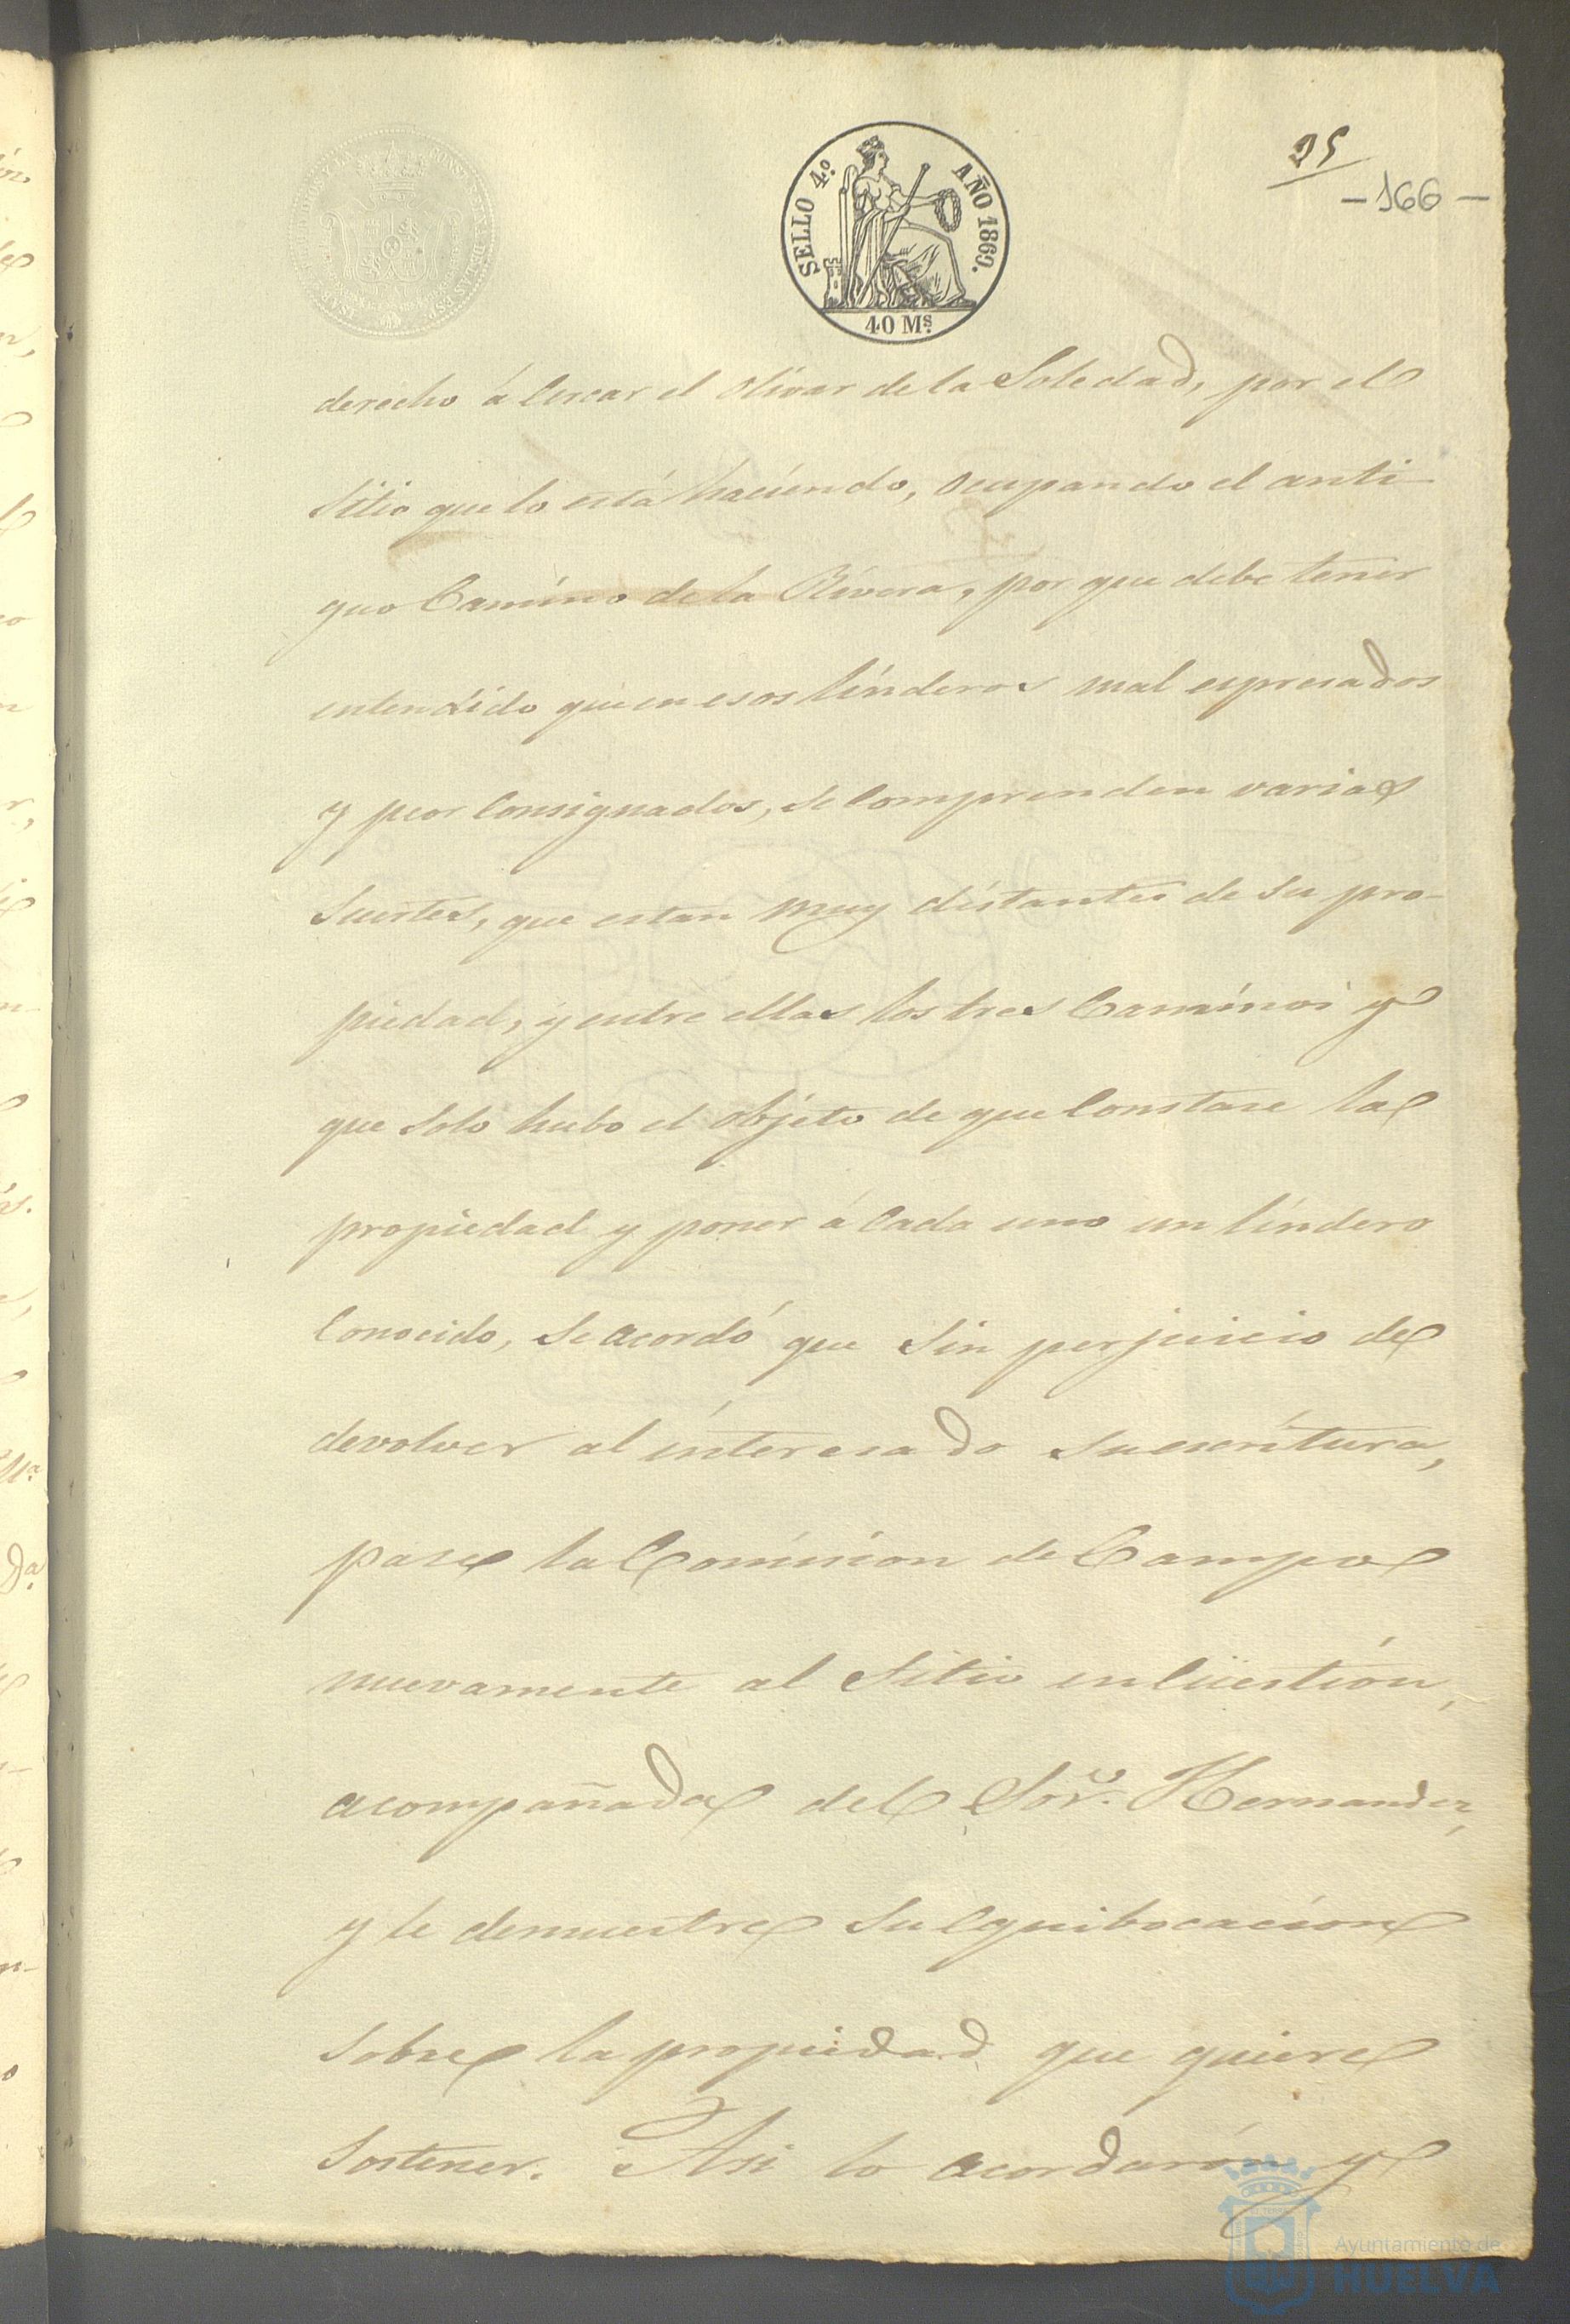 25
-166-
SELLO 4.º AÑO 1869.
40 Ms.
derecho á Cercar el Olivar de la Soledad, por el
Sitio que lo está haciendo, Ocupando el anti-
guo Camino de la Rivera, por que debe tener
entendido que en esos linderos mal espresados
y peor Consignados, se Comprenden varias
Suertes, que estan muy distantes de su pro-
piedad, y entre ellas los tres Caminos y
que solo hubo el objeto de que Constase la
propiedad y poner á Cada uno un lindero
Conocido, Se acordó que Sin perjuicio de
devolver al interesado su escritura,
pase la Comision de Campo
nuevamente al Sitio en Cüestión,
acompañada del Sor. Hernandez,
y le demuestre Su Equibocacion
Sobre la propiedad que quiere
Sostener. Asi lo acordarón y
Ayuntamiento de
HUELVA